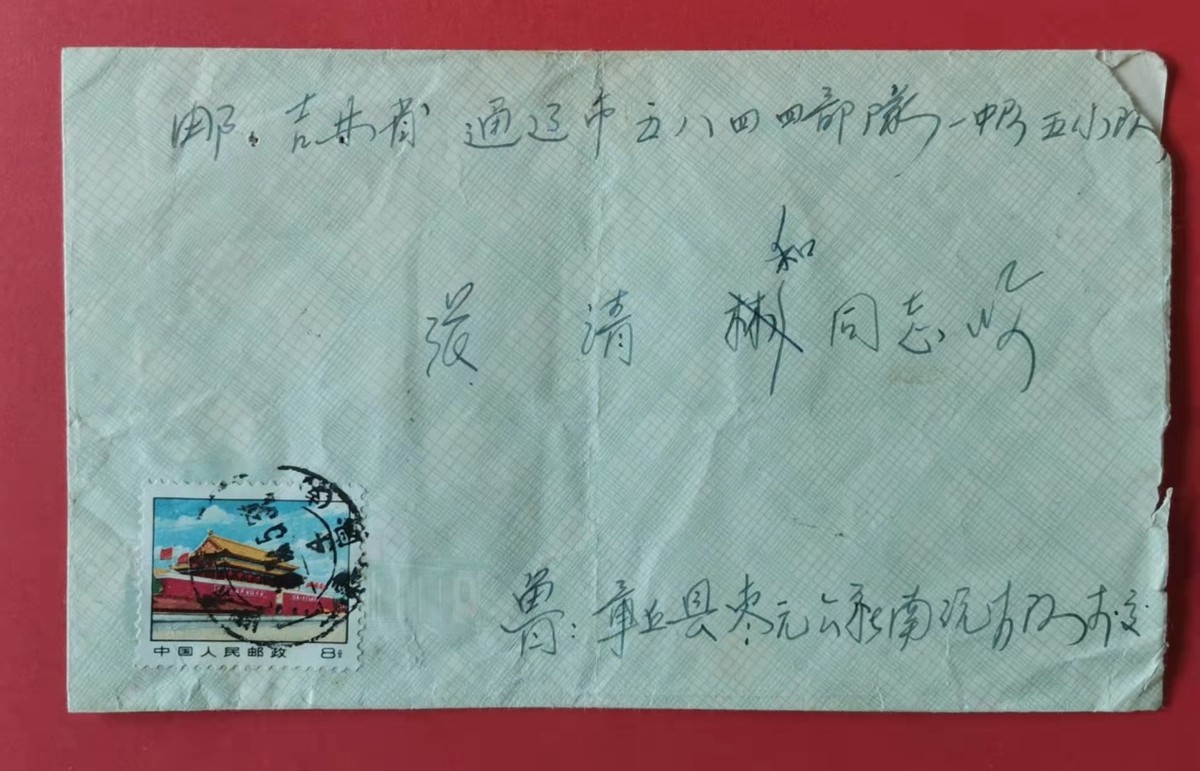 邮：吉林省 通辽市五八四四部隊一中队五小队
和
张 清 彬 同志 收
鲁：章丘县枣元公社南
中国人民邮政 8分